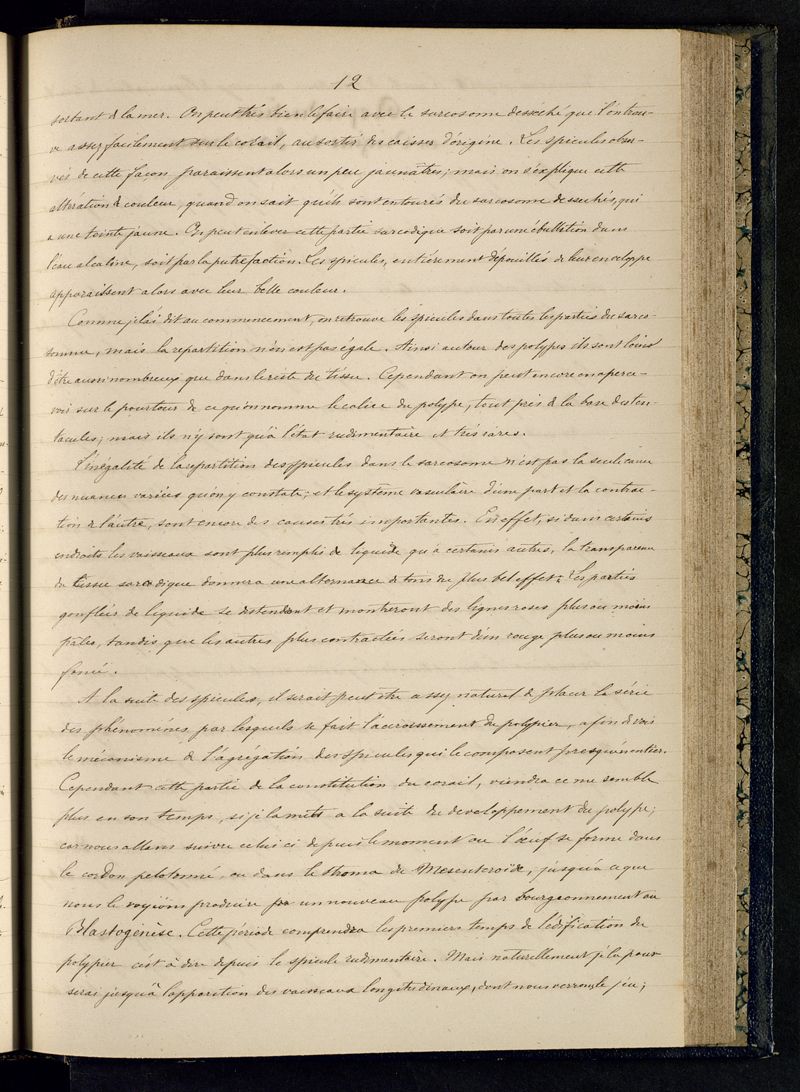 12
sortant de la mer. On peut très bien le faire avec le sarcosome desséché que l'on trou-
ve assez facilement sur le corail, au sortir des caisses d'origine. Les spicules obser-
vés de cette façon paraissent alors un peu jaunâtres; mais on s'explique cette
altération de couleur, quand on sait qu'ils sont entourés du sarcosome desséchés, qui
a une teinte jaune. On peut enlever cette partie sarcodique soit par une ébullition dans
l'eau alcaline, soit par la putrefaction. Les spicules, entièrement dépouillés de leur enveloppe
apparaissent alors avec leur belle couleur.
Comme je l'ai dit au commencement, on retrouve les spicules dans toutes les parties du sarco-
somme, mais la repartition n'en est pas égale. Ainsi autour des polypes ils sont loin
d'être aussi nombreux que dans le reste du tissu. Cependant on peut encore en aperce-
voir sur le pourtour de ce qu'on nomme le calice du polype, tout près de la base des ten-
tacules; mais ils n'y sont qu'à l'état rudimentaire et très rares.
L'inégalité de la repartition des spicules dans le sarcosome n'est pas la seule cause
des nuances variées qu'on y constate; et le système vasculaire d'une part et la contrac-
tion de l'autre, sont encore des causes très importantes. En effet, si dans certains
endroits les vaisseaux sont plus remplis de liquide qu'à certains autres, la transparence
du tissu sarcodique donnera une alternance de tons du plus bel effet. Les parties
gonflées de liquide se distendent et montreront des lignes roses plus ou moins
pâles, tandis que les autres plus contractées seront d'un rouge plus ou moins
foncé.
A la suite des spicules, il serait peut être assez naturel de placer la série
des phénomènes par lesquels se fait l'accroissement du polypier, afin de voir
le mécanisme de l'agrégation des spicules qui le composent presqu'en entier.
Cependant cette partie de la constitution du corail, viendra ce me semble
plus en son temps, si je la mets a la suite du developpement du polype;
car nous allons suivre celui ci depuis le moment ou l'œuf se forme dans
le cordon pelotonné, ou dans le stroma du Mesenteroïde, jusqu'à ce que
nous le voyions produire un nouveau polype par bourgeonnement ou
Blastogénèse. Cette période comprendra les premiers temps de l'édification du
polypier c'est à dire depuis le spicule rudimentaire. Mais naturellement je la pous-
serai jusqu'à l'apparition des vaisseaux longitudinaux, dont nous verrons le jeu;